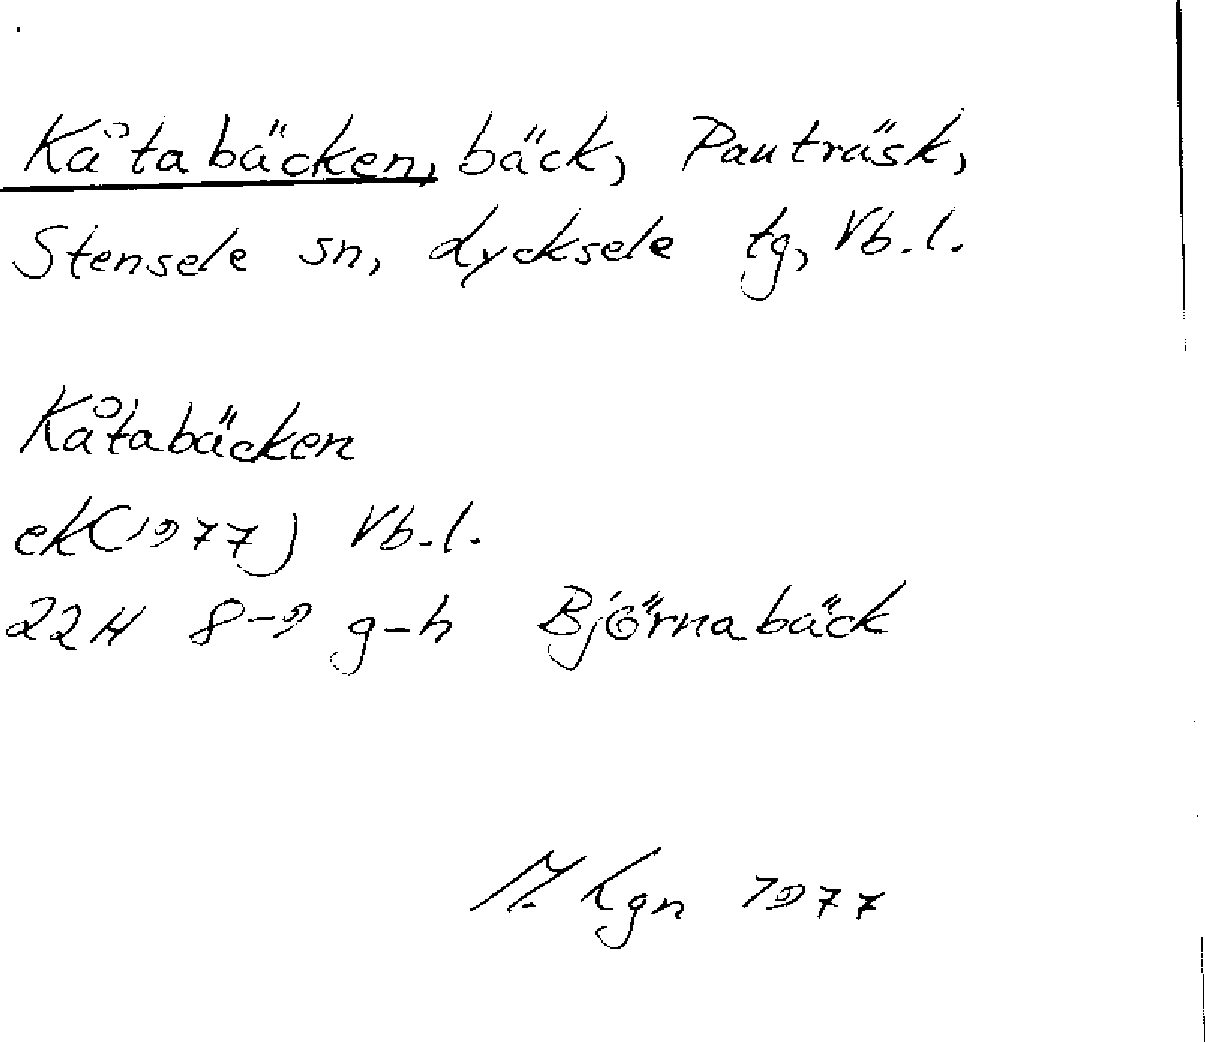 Kåtabäcken, bäck, Pauträsk,
Stensele sn, Lycksele tg, Vb.l.
Kåtabäcken
ek(1977) Vb.l.
22H 8-9 g-h Björnabäck
1977